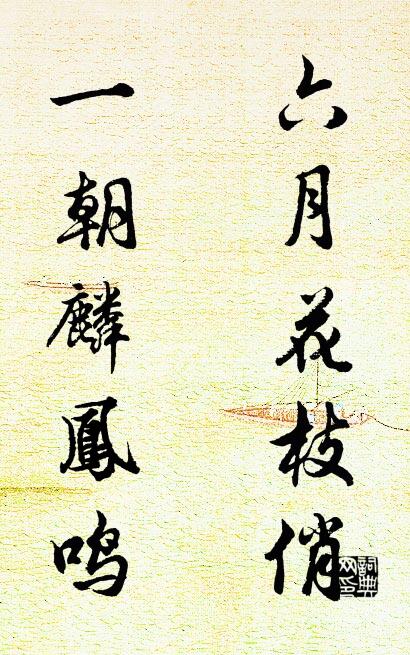 六月花枝俏
一朝麟鳳鸣
詞典
网印